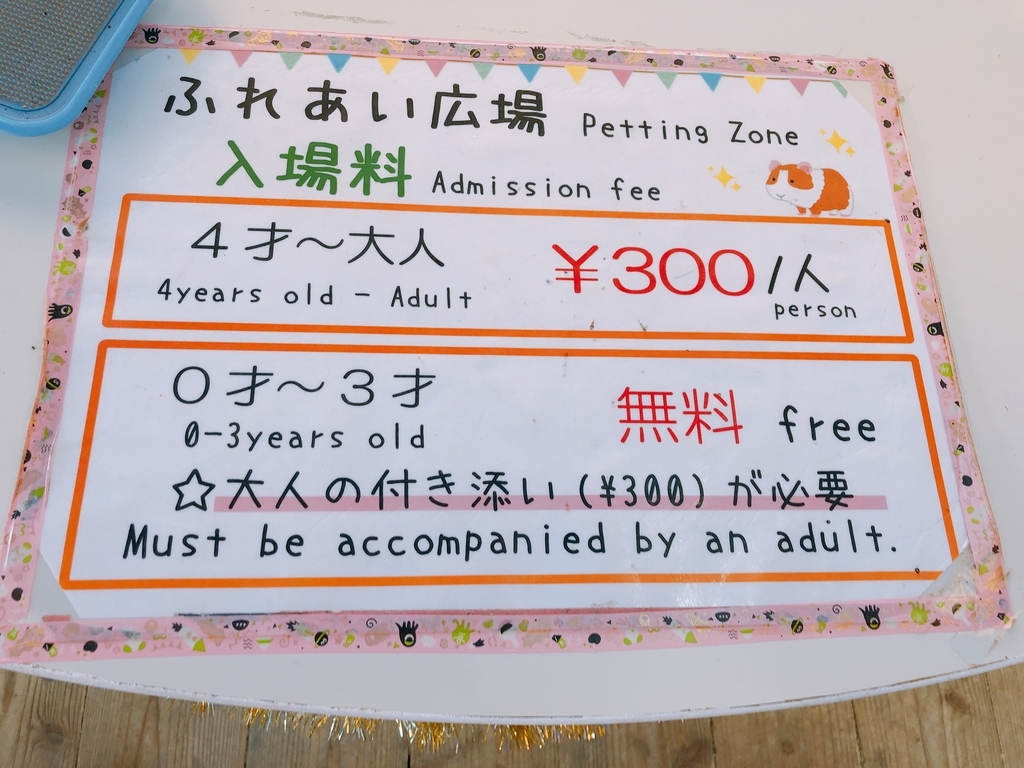 ふれあい広場 Petting Zone
入場料 Admission fee
4才〜大人 ¥300/人
4years old - Adult person
0才〜3才 無料 free
0-3years old
☆大人の付き添い(¥300)が必要
Must be accompanied by an adult.